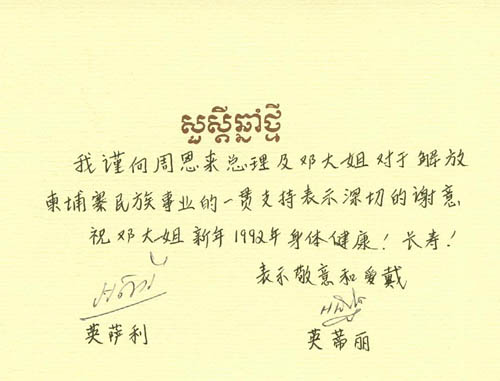 សួស្តីឆ្នាំថ្មី
我谨向周恩来总理及邓大姐对于解放
柬埔寨民族事业的一贯支持表示深切的谢意.
祝邓大姐新年1992年身体健康!长寿!
表示敬意和爱戴
英萨利
英蒂丽